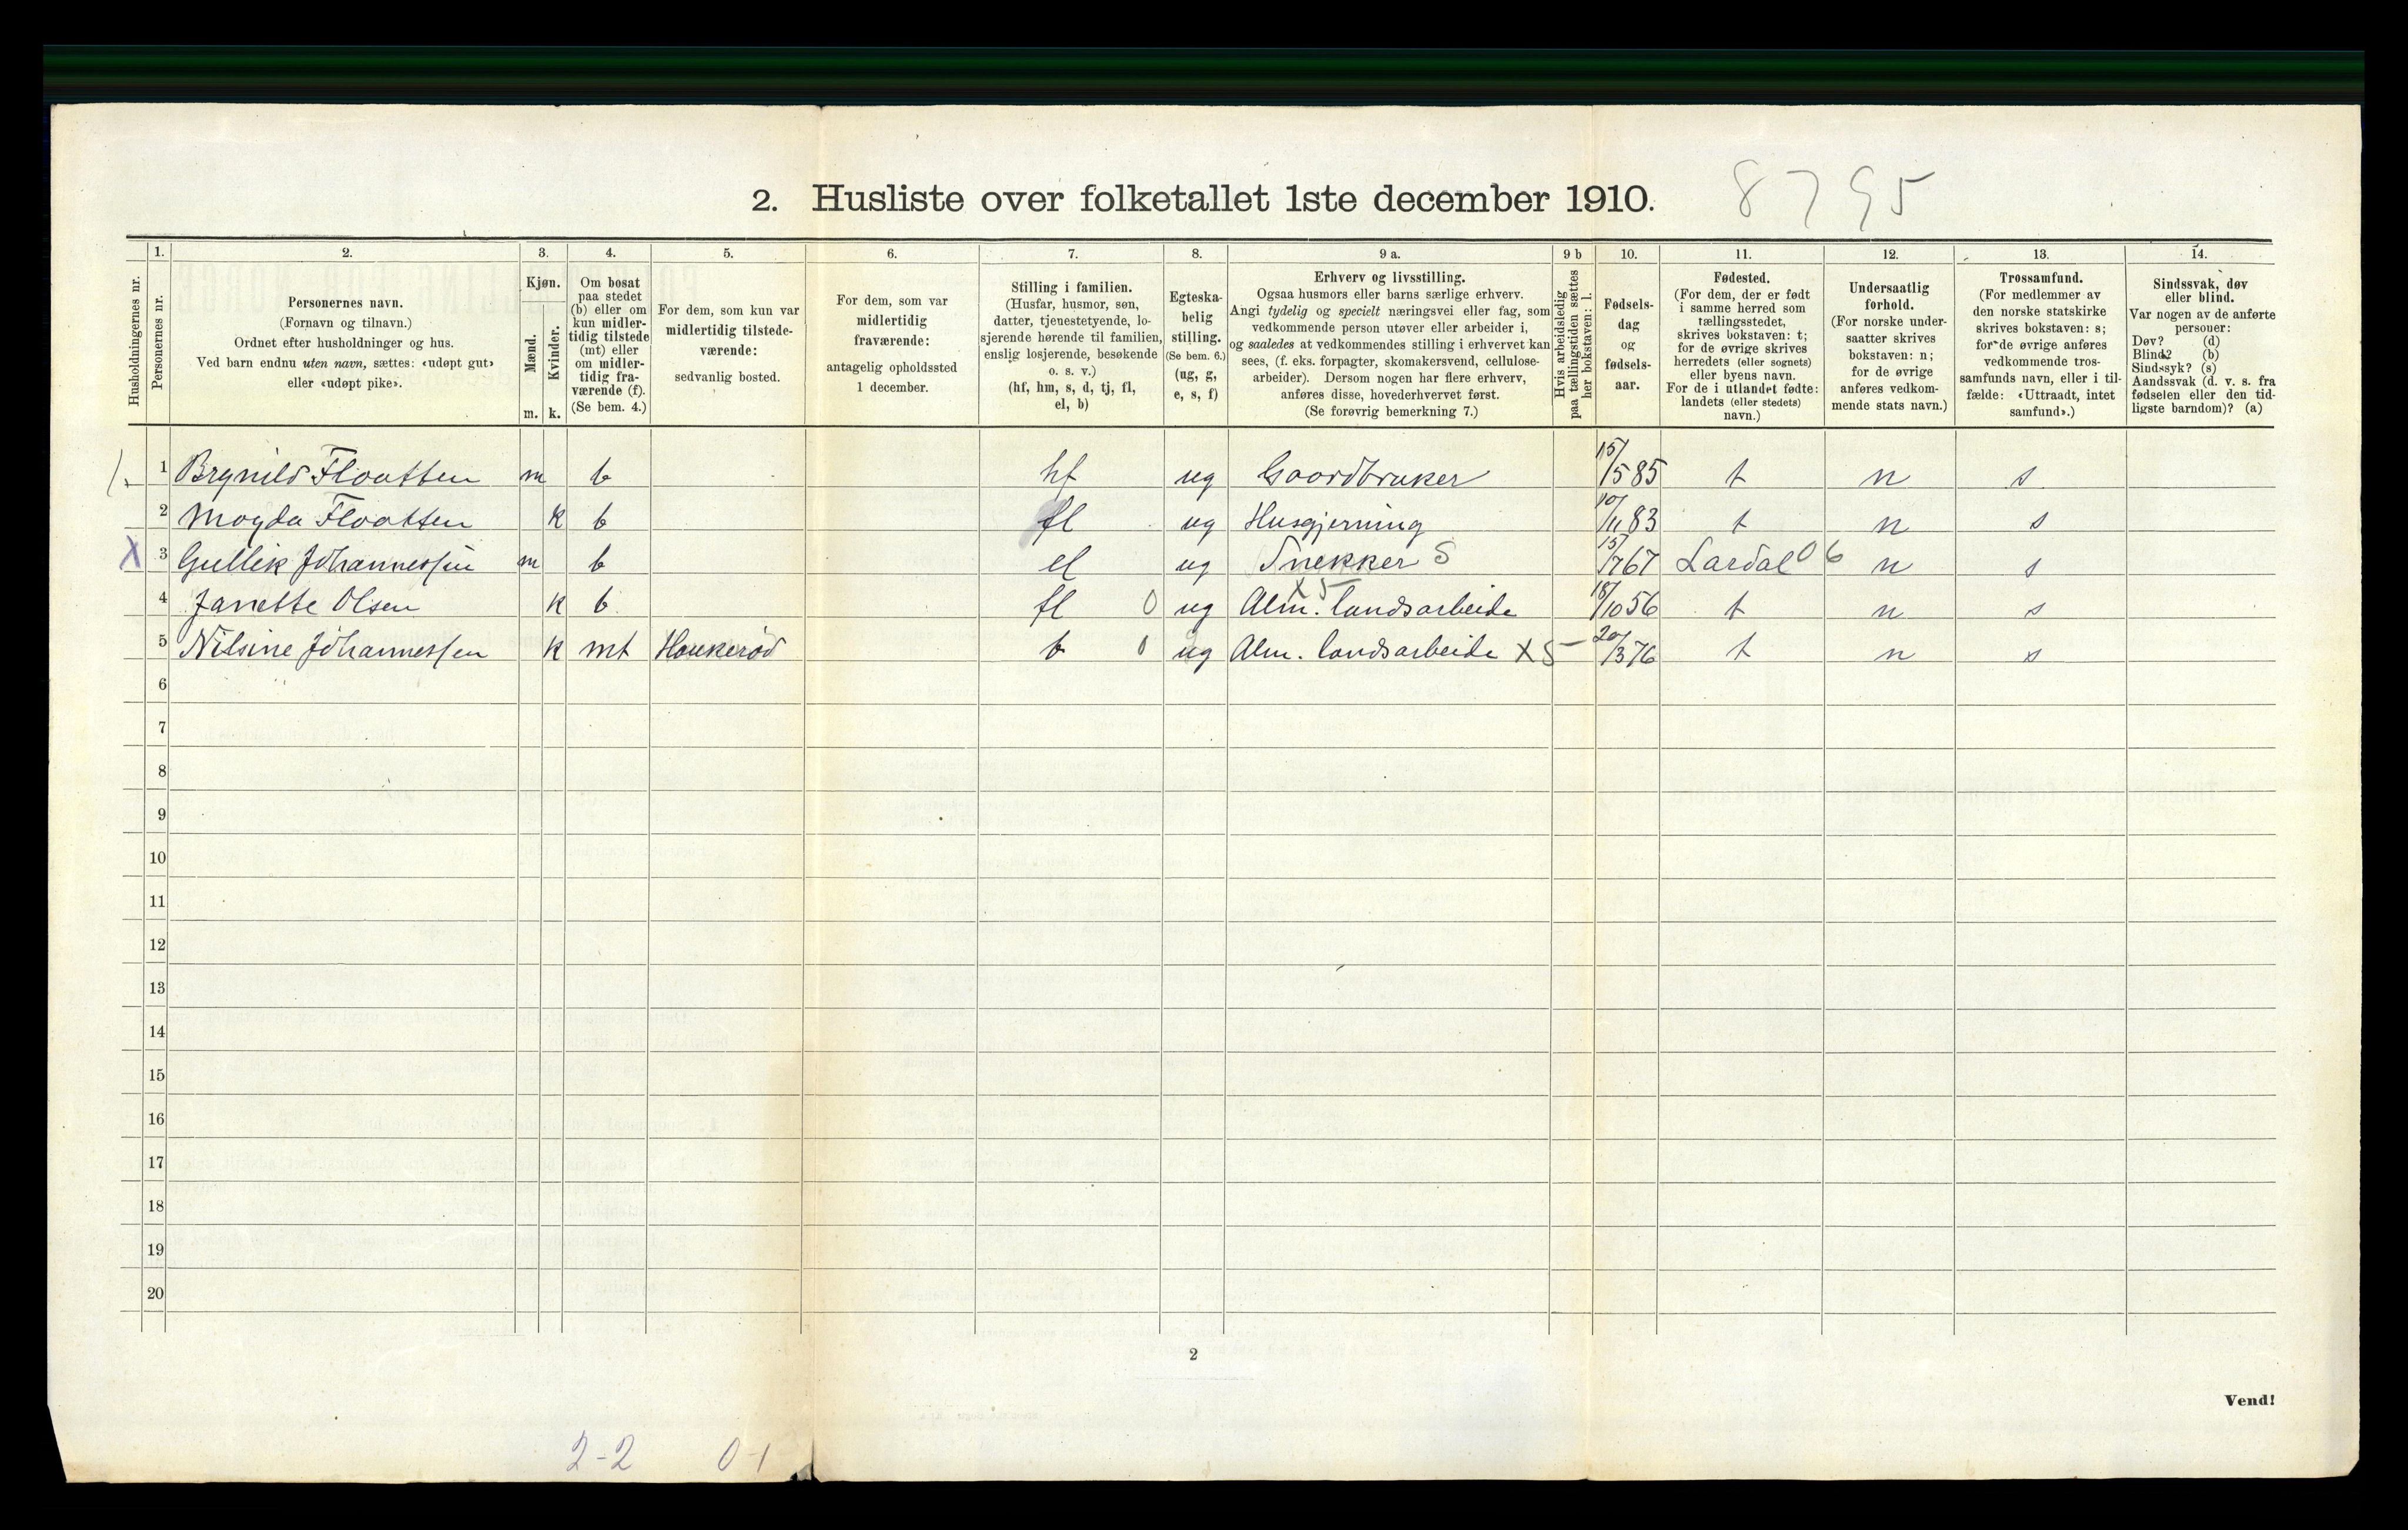 2. Husliste over folketallet 1ste december 1910. 8795
Husholdningernes nr.
1. Personernes nr.
2. Personernes navn.
(Fornavn og tilnavn.)
Ordnet efter husholdninger og hus.
Ved barn endnu uten navn, sættes: «udøpt gut»
eller «udøpt pike».
3. Kjøn.
Mænd. m.
Kvinder. k.
4. Om bosat
paa stedet
(b) eller om
kun midler-
tidig tilstede
(mt) eller
om midler-
tidig fra-
værende (f).
(Se bem. 4.)
5. For dem, som kun var
midlertidig tilstede-
værende:
sedvanlig bosted.
6. For dem, som var
midlertidig
fraværende:
antagelig opholdssted
1 december.
7. Stilling i familien.
(Husfar, husmor, søn,
datter, tjenestetyende, lo-
sjerende hørende til familien,
enslig losjerende, besøkende
o. s. v.)
(hf, hm, s, d, tj, fl,
el, b)
8. Egteska-
belig
stilling.
(Se bem. 6.)
(ug, g,
e, s, f)
9 a. Erhverv og livsstilling.
Ogsaa husmors eller barns særlige erhverv.
Angi tydelig og specielt næringsvei eller fag, som
vedkommende person utøver eller arbeider i,
og saaledes at vedkommendes stilling i erhvervet kan
sees, (f. eks. forpagter, skomakersvend, cellulose-
arbeider). Dersom nogen har flere erhverv,
anføres disse, hovederhvervet først.
(Se forøvrig bemerkning 7.)
9 b Hvis arbeidsledig
paa tællingstiden sættes
her bokstaven: l.
10. Fødsels-
dag
og
fødsels-
aar.
11. Fødested.
(For dem, der er født
i samme herred som
tællingsstedet,
skrives bokstaven: t;
for de øvrige skrives
herredets (eller sognets)
eller byens navn.
For de i utlandet fødte:
landets (eller stedets)
navn.)
12. Undersaatlig
forhold.
(For norske under-
saatter skrives
bokstaven: n;
for de øvrige
anføres vedkom-
mende stats navn.)
13. Trossamfund.
(For medlemmer av
den norske statskirke
skrives bokstaven: s;
for de øvrige anføres
vedkommende tros-
samfunds navn, eller i til-
fælde: «Uttraadt, intet
samfund».)
14. Sindssvak, døv
eller blind.
Var nogen av de anførte
personer:
Døv? (d)
Blind? (b)
Sindssyk? (s)
Aandssvak (d. v. s. fra
fødselen eller den tid-
ligste barndom)? (a)
1 Brynild Floatten m b hf ug Gaardbruker 15/5 85 t n s
2 Magda Floatten k b fl ug Husgjerning 10/11 83 t n s
X 3 Gullik Johannessen m b el ug Snekker S 15/7 67 Lardal 06 n s
4 Janette Olsen k b fl 0 ug Alm. landsarbeide X5 18/10 56 t n s
5 Nilsine Johannessen k mt Haukerød b 0 ug Alm. landsarbeide X5 20/3 76 t n s
6
7
8
9
10
11
12
13
14
15
16
17
18
19
20
2
Vend!
2-2 0-1